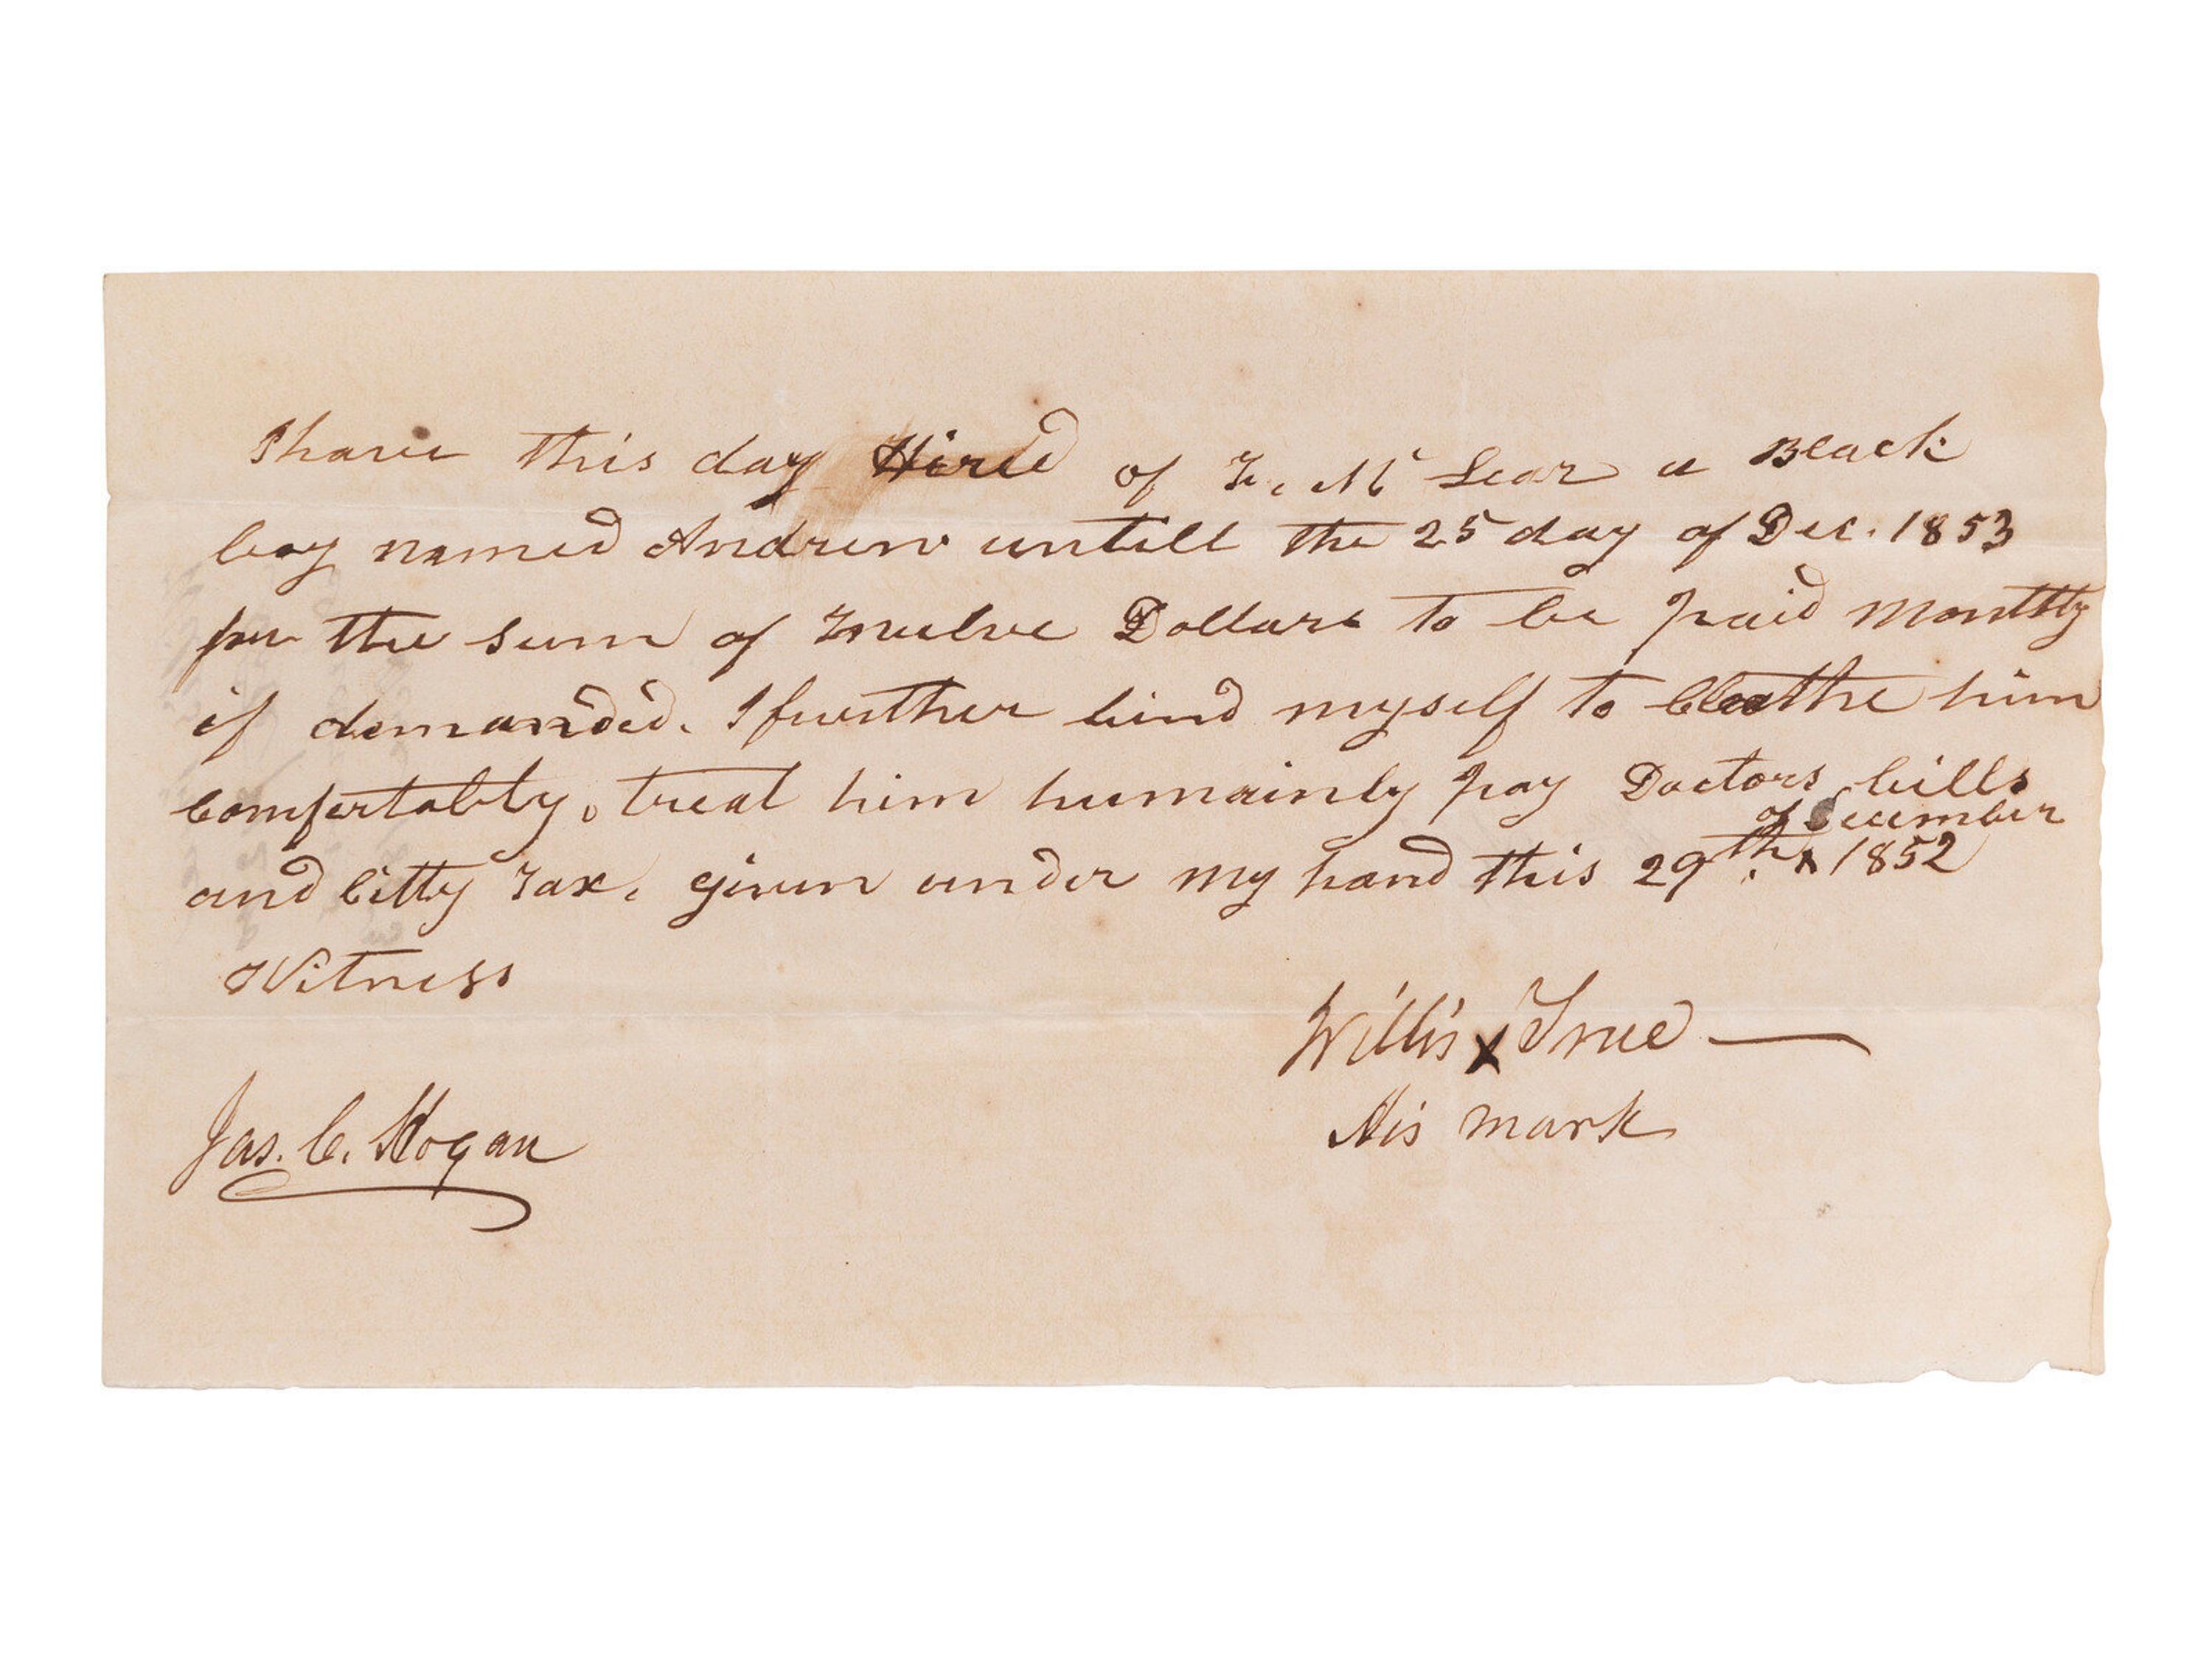 I have this day Hired of T. Mc Lear a Black
boy named Andrew untill the 25 day of Dec. 1853
for the sum of Twelve Dollars to be paid Monthly
if demanded. I further bind myself to Cloathe him
Comfertably, treat him humainly pay Doctors bills
of December
and Citty Tax, given under my hand this 29th. ^ 1852
Witness
Willis X True
His mark
Jas. C. Hogan